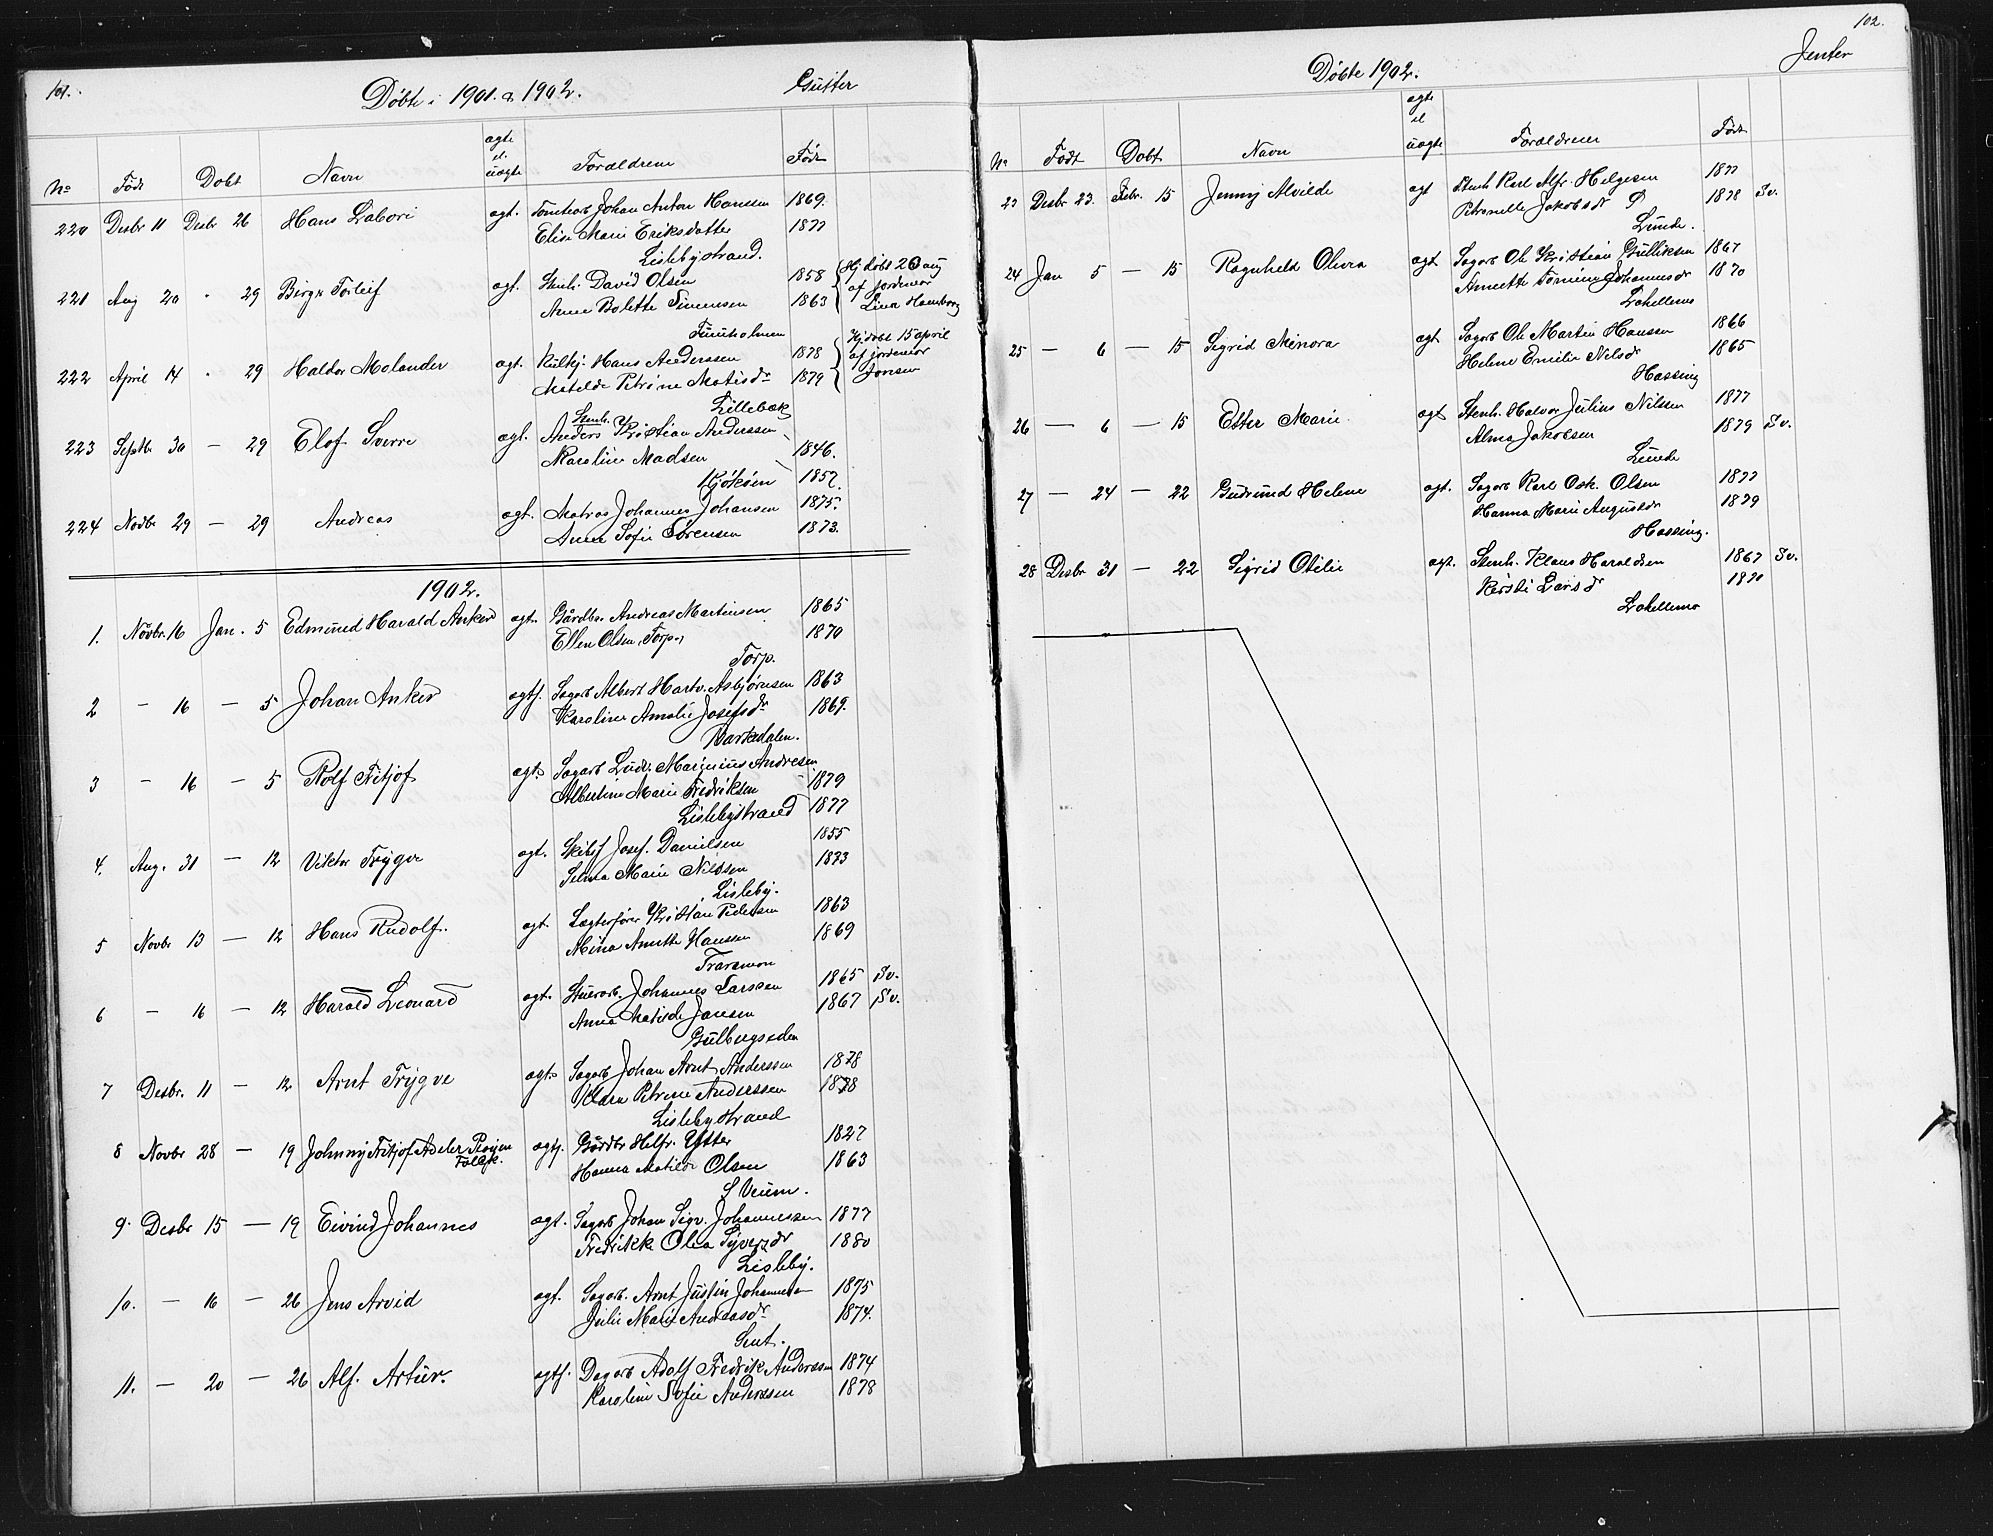 101.
Døbte i 1901. & 1902.
Gutter
No Født Døbt Navn ægte el. uægte Forældrene Født
220 Desbr 11 Desbr 26 Hans Labori ægt. Tomtearb Johan Anton Hansen 1869.
Elise Marie Eriksdatter 1877
Lislebystrand.
221 Aug 20 " 29 Birger Torleif ægt. Stenh. David Olsen 1858 Hj døbt 20 aug
Anne Bolette Simensen 1863 af jordemor
Lina Hamborg
Furuholmen
222 April 14 " 29 Haldor Molander ægt. Hans Anderssen 1878 Hj døbt 15 april
Matilde Petrine Matisdr 1879 af jordemor
Jonsen
Lillebæk
223 Septbr 30 — 29 Elof Sverre ægt. Stenh. Anders Kristian Anderssen 1846.
Karoline Madsen 1857.
Kjøkøen
224 Novbr 29 — 29 Andreas ægt. Matros Johannes Johansen 1875.
Anna Sofie Sørensen 1873.
1902.
1. Novbr. 16 Jan. 5 Edmund Harald Anker ægt. Gårdbr. Andreas Martinsen 1865
Ellen Olsen, Torp., 1870
Torp.
2 — 16 — 5 Johan Anker ægtf. Sagarb Albert Hartv. Asbjørnsen 1863
Karoline Amalie Josefsdr 1869.
Barkedalen.
3 — 16 — 5 Rolf Fritjof ægt. Sagarb Ludv. Marinius Andresen 1879
Albertine Marie Fredriksen 1877
Lislebystrand
4. Aug. 31 — 12 Viktor Trygve ægt. Skibsf Josef. Danielsen 1855
Selma Marie Nilssen 1873
Lisleby.
5 Novbr 13 — 12 Hans Rudolf. ægt. Lægterfører Kristian Pedersen 1863
Mina Anette Hansen 1869
Traramoen
6 — 16 — 12 Harald Leonard ægt. Stuerarb. Johannes Larssen 1865 Sv.
Anna Matilde Jansen 1867 Sv.
Gulbergseden
7 Desbr. 11 — 12 Arnt Trygve ægt. Sagarb Johan Arnt Anderssen 1878
Klara Petrine Anderssen 1878
Lislebystrand
8 Novbr 28 — 19 Johnny Fritjof Adeler Røyem Falck. ægtf. Gårdbr Helfr. Ytter 1827
Hanna Matilde Olsen 1863
S Veum.
9. Desbr 15 — 19 Eivind Johannes ægt. Sagarb Johan Sigv. Johannessen 1877
Fredrikke Olea Syversdr 1880
Lisleby.
10. — 16 — 26 Jens Arvid ægt. Sagarb. Arnt Justin Johannesen 1875
Julie Marie Andreasdr 1874.
Smt.
11. — 20 — 26 Alf. Artur. ægtf. Dagarb Adolf Fredrik Anderssen 1874
Karoline Sofie Anderssen 1878
102.
Døbte 1902.
Jenter
No Født Døbt Navn ægte el uægte Forældrene Født
23 Desbr 23. Febr. 15 Jenny Alvilde ægt Stenh Karl Alfr. Helgesen 1877
Petronelle Jakobsdr 1878 Sv.
Lunde.
24 Jan 5 — 15 Ragnhild Olivia ægt Sagarb Ole Kristian Gulliksen 1867
Annette Tomine Johannesdr 1870
Lahellemo
25 — 6 — 15 Sigrid Minora ægt Sagarb Ole Martin Hansen 1866
Helene Emilie Nilsdr 1865
Hassing
26 — 6 — 15 Ester Marie ægt Stenh. Halvor Julius Nilssen 1877
Alma Jakobsen 1879 Sv.
Lunde
27 — 24 — 22 Gudrund Helene ægt. Sagarb Karl Osk. Olsen 1877
Hanna Marie Augustdr 1879
Hassing.
28 Desbr 31 — 22 Sigrid Otilie ægt. Stenh. Klaus Haraldsen 1867 Sv.
Kersti Larsdr 1870
Lahellemo